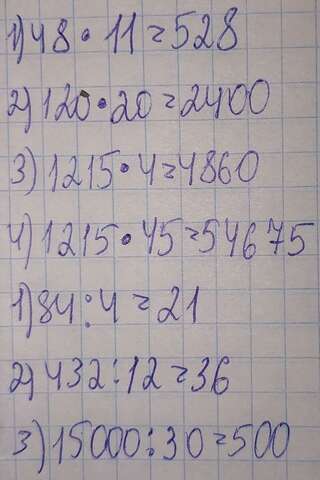 1) 48 · 11 = 528
2) 120 · 20 = 2400
3) 1215 · 4 = 4860
4) 1215 · 45 = 54675
1) 84 : 4 = 21
2) 432 : 12 = 36
3) 15000 : 30 = 500